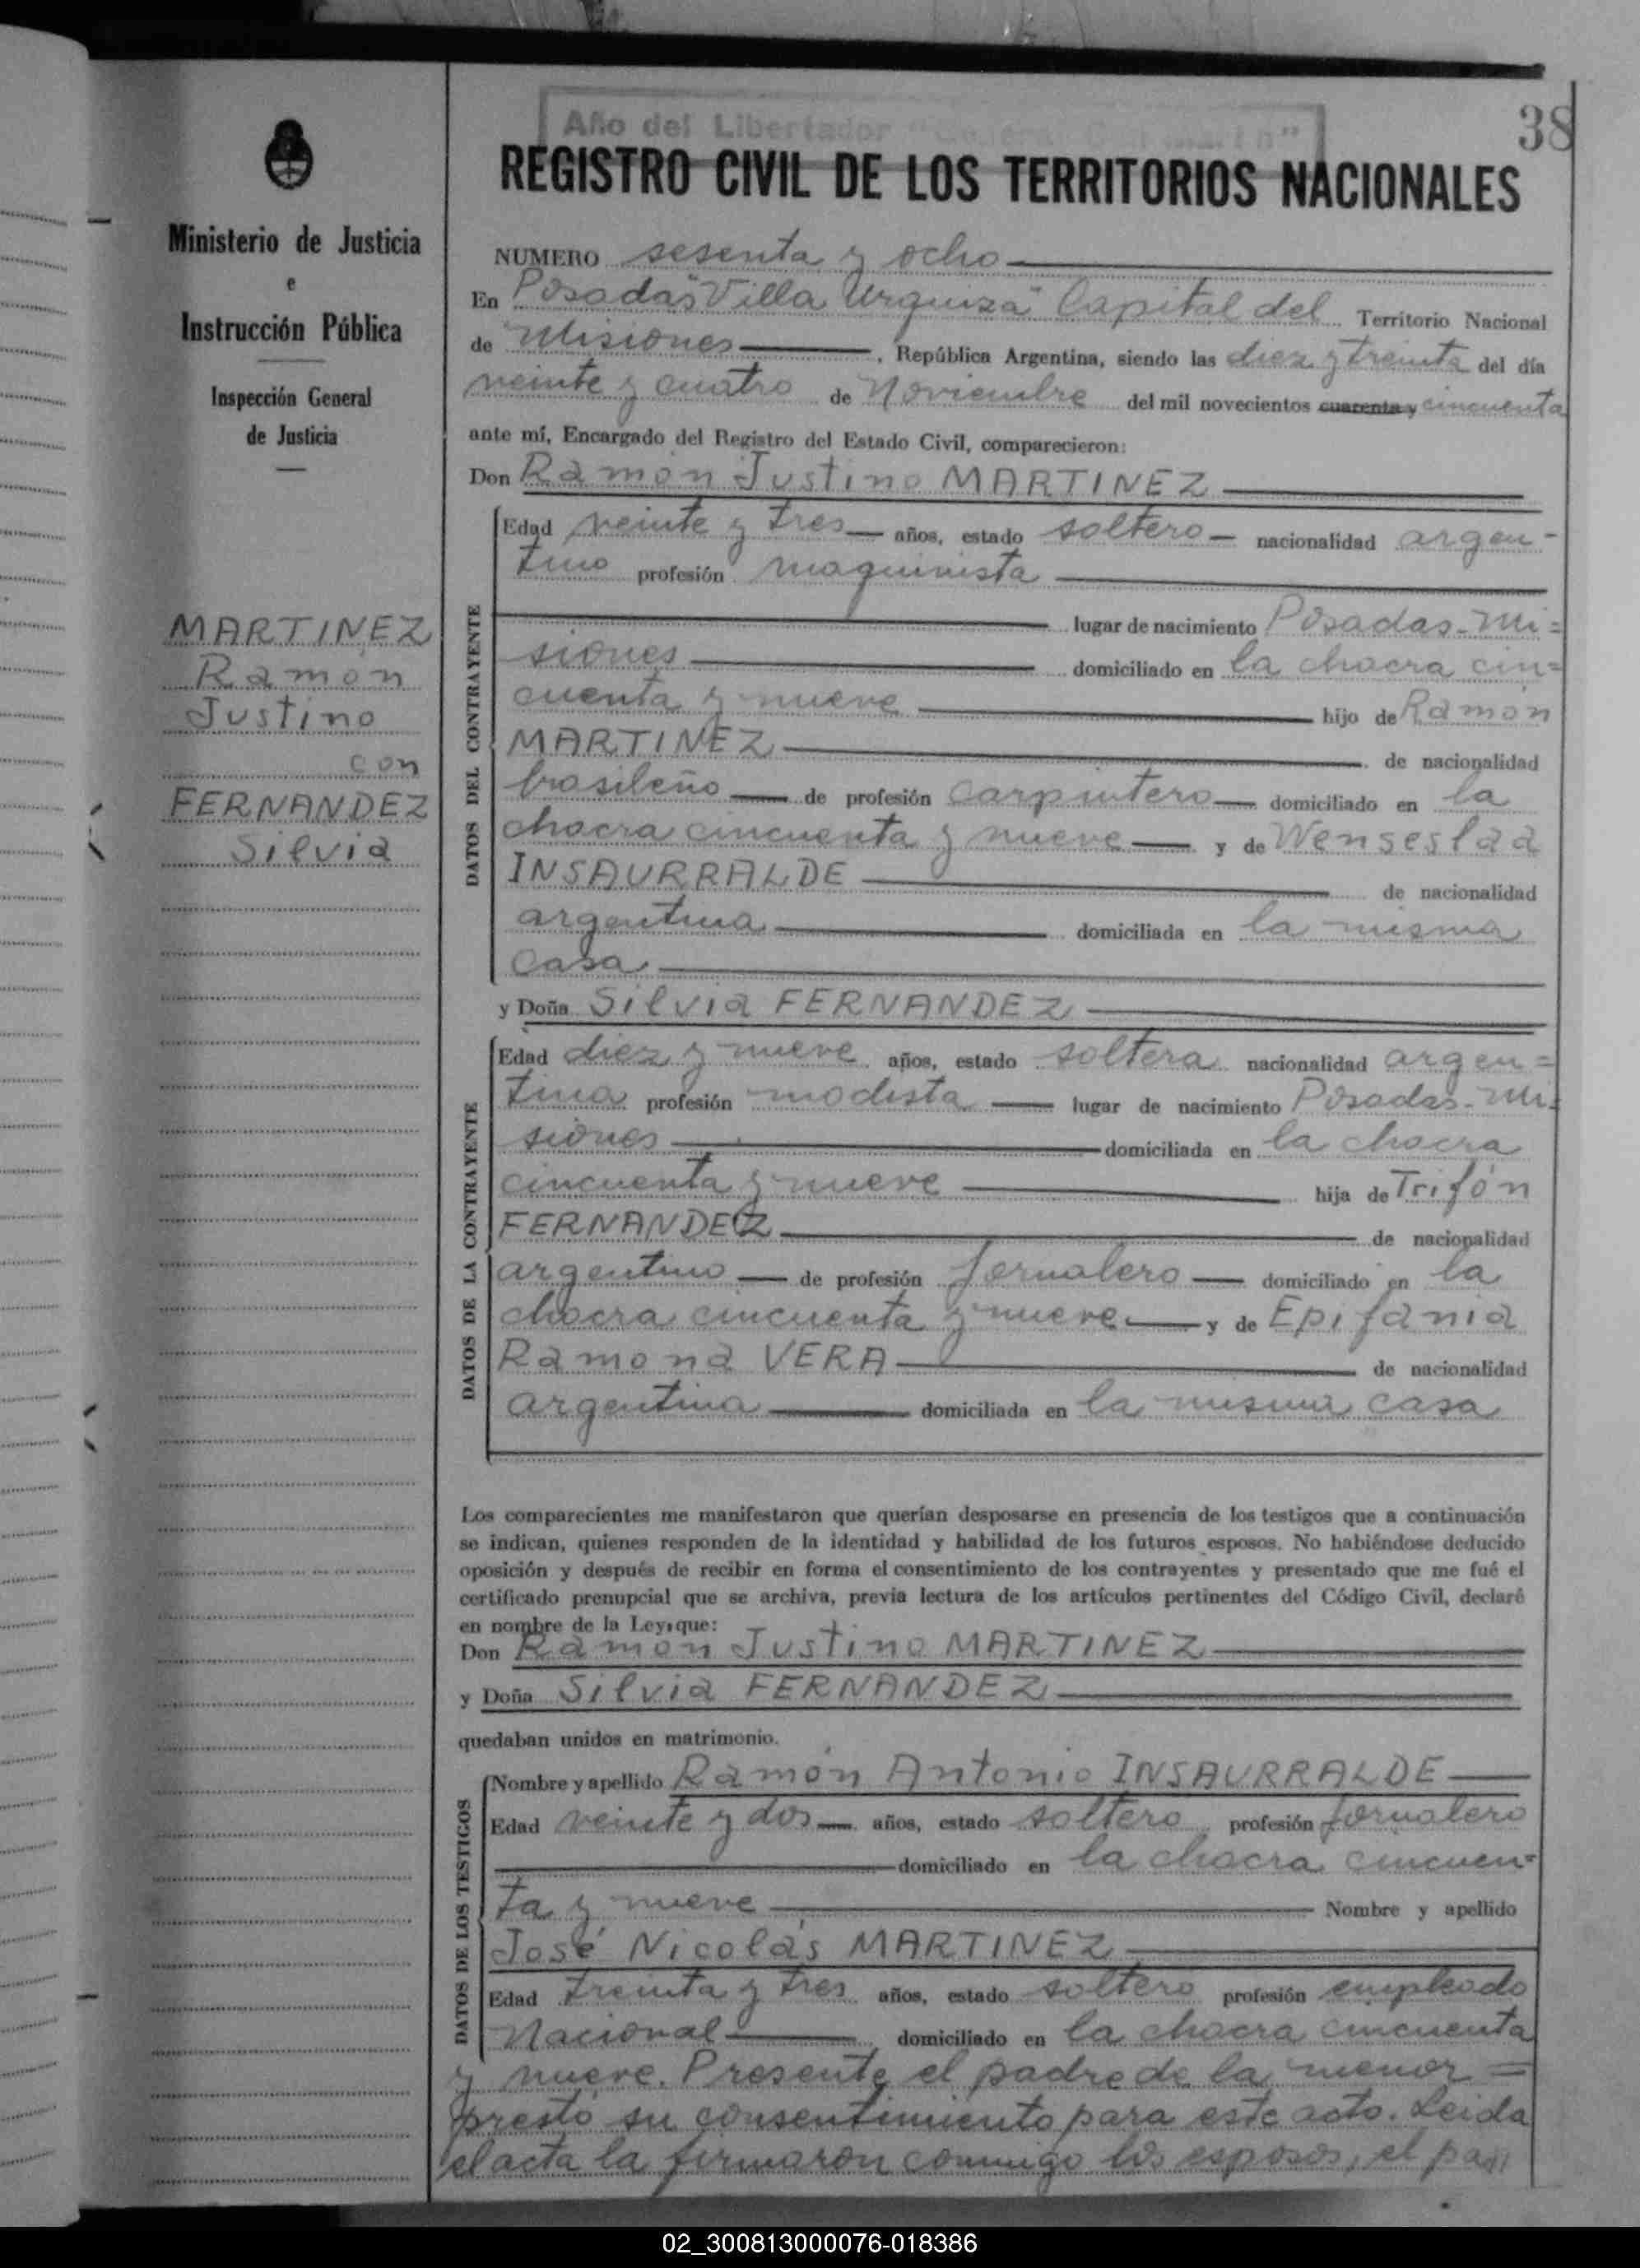 Año del Libertador "General San Martín"
38
REGISTRO CIVIL DE LOS TERRITORIOS NACIONALES
Ministerio de Justicia
e
Instrucción Pública
Inspección General
de Justicia
MARTINEZ
Ramón
Justino
con
FERNANDEZ
Silvia
NUMERO sesenta y ocho
En Posadas "Villa Urquiza" Capital del Territorio Nacional
de Misiones, República Argentina, siendo las diez y treinta del día
veinte y cuatro de Noviembre del mil novecientos cuarenta y cincuenta
ante mí, Encargado del Registro del Estado Civil, comparecieron:
Don Ramón Justino MARTINEZ
DATOS DEL CONTRAYENTE
Edad veinte y tres años, estado soltero nacionalidad argen-
tino profesión maquinista
lugar de nacimiento Posadas-Mi=
siones domiciliado en la chacra cin=
cuenta y nueve hijo de Ramón
MARTINEZ de nacionalidad
brasileño de profesión carpintero domiciliado en la
chacra cincuenta y nueve y de Wenseslaa
INSAURRALDE de nacionalidad
argentina domiciliada en la misma
casa
y Doña Silvia FERNANDEZ
DATOS DE LA CONTRAYENTE
Edad diez y nueve años, estado soltera nacionalidad argen=
tina profesión modista lugar de nacimiento Posadas-Mi=
siones domiciliada en la chacra
cincuenta y nueve hija de Trifón
FERNANDEZ de nacionalidad
argentino de profesión jornalero domiciliado en la
chacra cincuenta y nueve y de Epifania
Ramona VERA de nacionalidad
argentina domiciliada en la misma casa
Los comparecientes me manifestaron que querían desposarse en presencia de los testigos que a continuación
se indican, quienes responden de la identidad y habilidad de los futuros esposos. No habiéndose deducido
oposición y después de recibir en forma el consentimiento de los contrayentes y presentado que me fué el
certificado prenupcial que se archiva, previa lectura de los artículos pertinentes del Código Civil, declaré
en nombre de la Ley, que:
Don Ramón Justino MARTINEZ
y Doña Silvia FERNANDEZ
quedaban unidos en matrimonio.
DATOS DE LOS TESTIGOS
Nombre y apellido Ramón Antonio INSAURRALDE
Edad veinte y dos años, estado soltero profesión jornalero
domiciliado en la chacra cincuen=
ta y nueve Nombre y apellido
José Nicolás MARTINEZ
Edad treinta y tres años, estado soltero profesión empleado
Nacional domiciliado en la chacra cincuenta
y nueve. Presente el padre de la menor =
prestó su consentimiento para este acto. Leida
el acta la firmaron conmigo los esposos, el pa
02_300813000076-018386